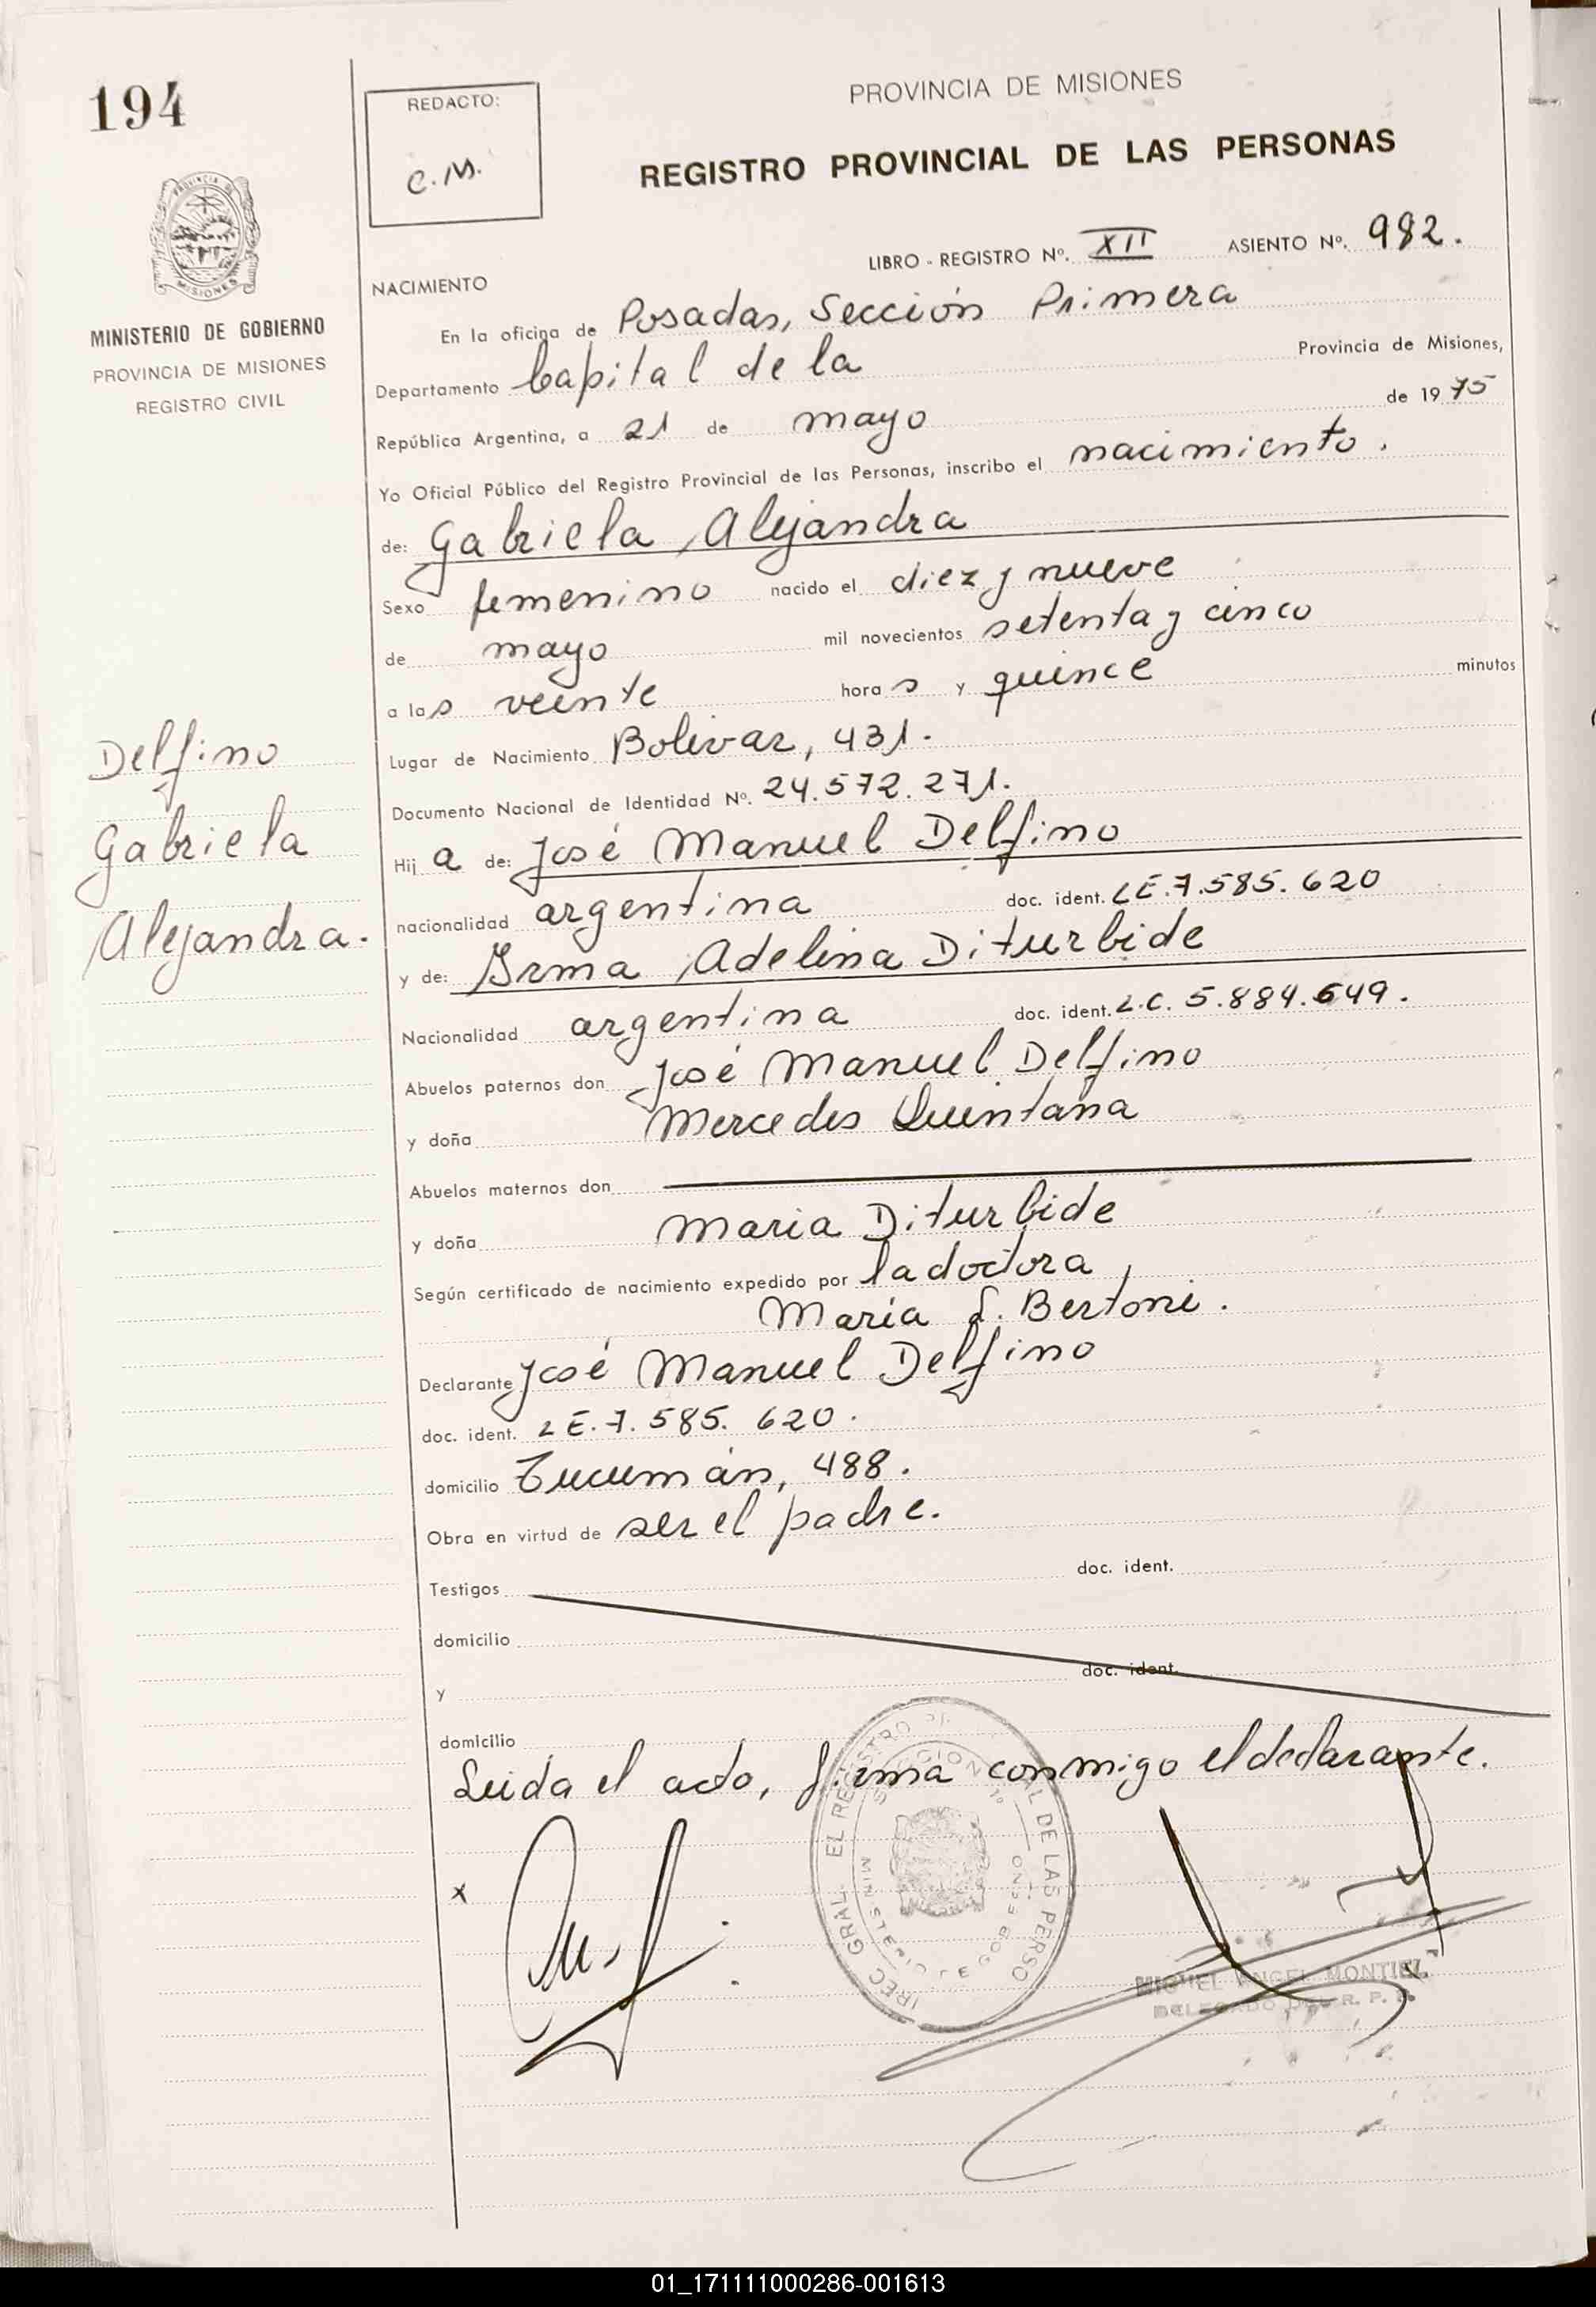 194
REDACTO:
C.M.
PROVINCIA DE MISIONES
REGISTRO PROVINCIAL DE LAS PERSONAS
LIBRO - REGISTRO Nº. XII ASIENTO Nº. 982.
MISIONES
MINISTERIO DE GOBIERNO
PROVINCIA DE MISIONES
REGISTRO CIVIL
NACIMIENTO
En la oficina de Posadas, Sección Primera
Departamento Capital de la Provincia de Misiones,
República Argentina, a 21 de mayo de 1975
Yo Oficial Público del Registro Provincial de las Personas, inscribo el nacimiento.
de: Gabriela Alejandra
Sexo femenino nacido el diez y nueve
de mayo mil novecientos setenta y cinco
a las veinte horas y quince minutos
Lugar de Nacimiento Bolivar, 431.
Documento Nacional de Identidad Nº. 24.572.271.
Delfino
Gabriela
Alejandra.
Hij a de: José Manuel Delfino
nacionalidad argentina doc. ident. LE.7.585.620
y de: Irma Adelina Diturbide
Nacionalidad argentina doc. ident. L.C. 5.884.649.
Abuelos paternos don José Manuel Delfino
y doña Mercedes Quintana
Abuelos maternos don
y doña Maria Diturbide
Según certificado de nacimiento expedido por la doctora
María L. Bertoni.
Declarante José Manuel Delfino
doc. ident. LE.7.585.620.
domicilio Tucumán, 488.
Obra en virtud de ser el padre.
Testigos doc. ident.
domicilio
y doc. ident.
domicilio
Leida el acto, firma conmigo el declarante.
x
MIGUEL ANGEL MONTIEL
DELEGADO DEL R. P. P.
01_171111000286-001613